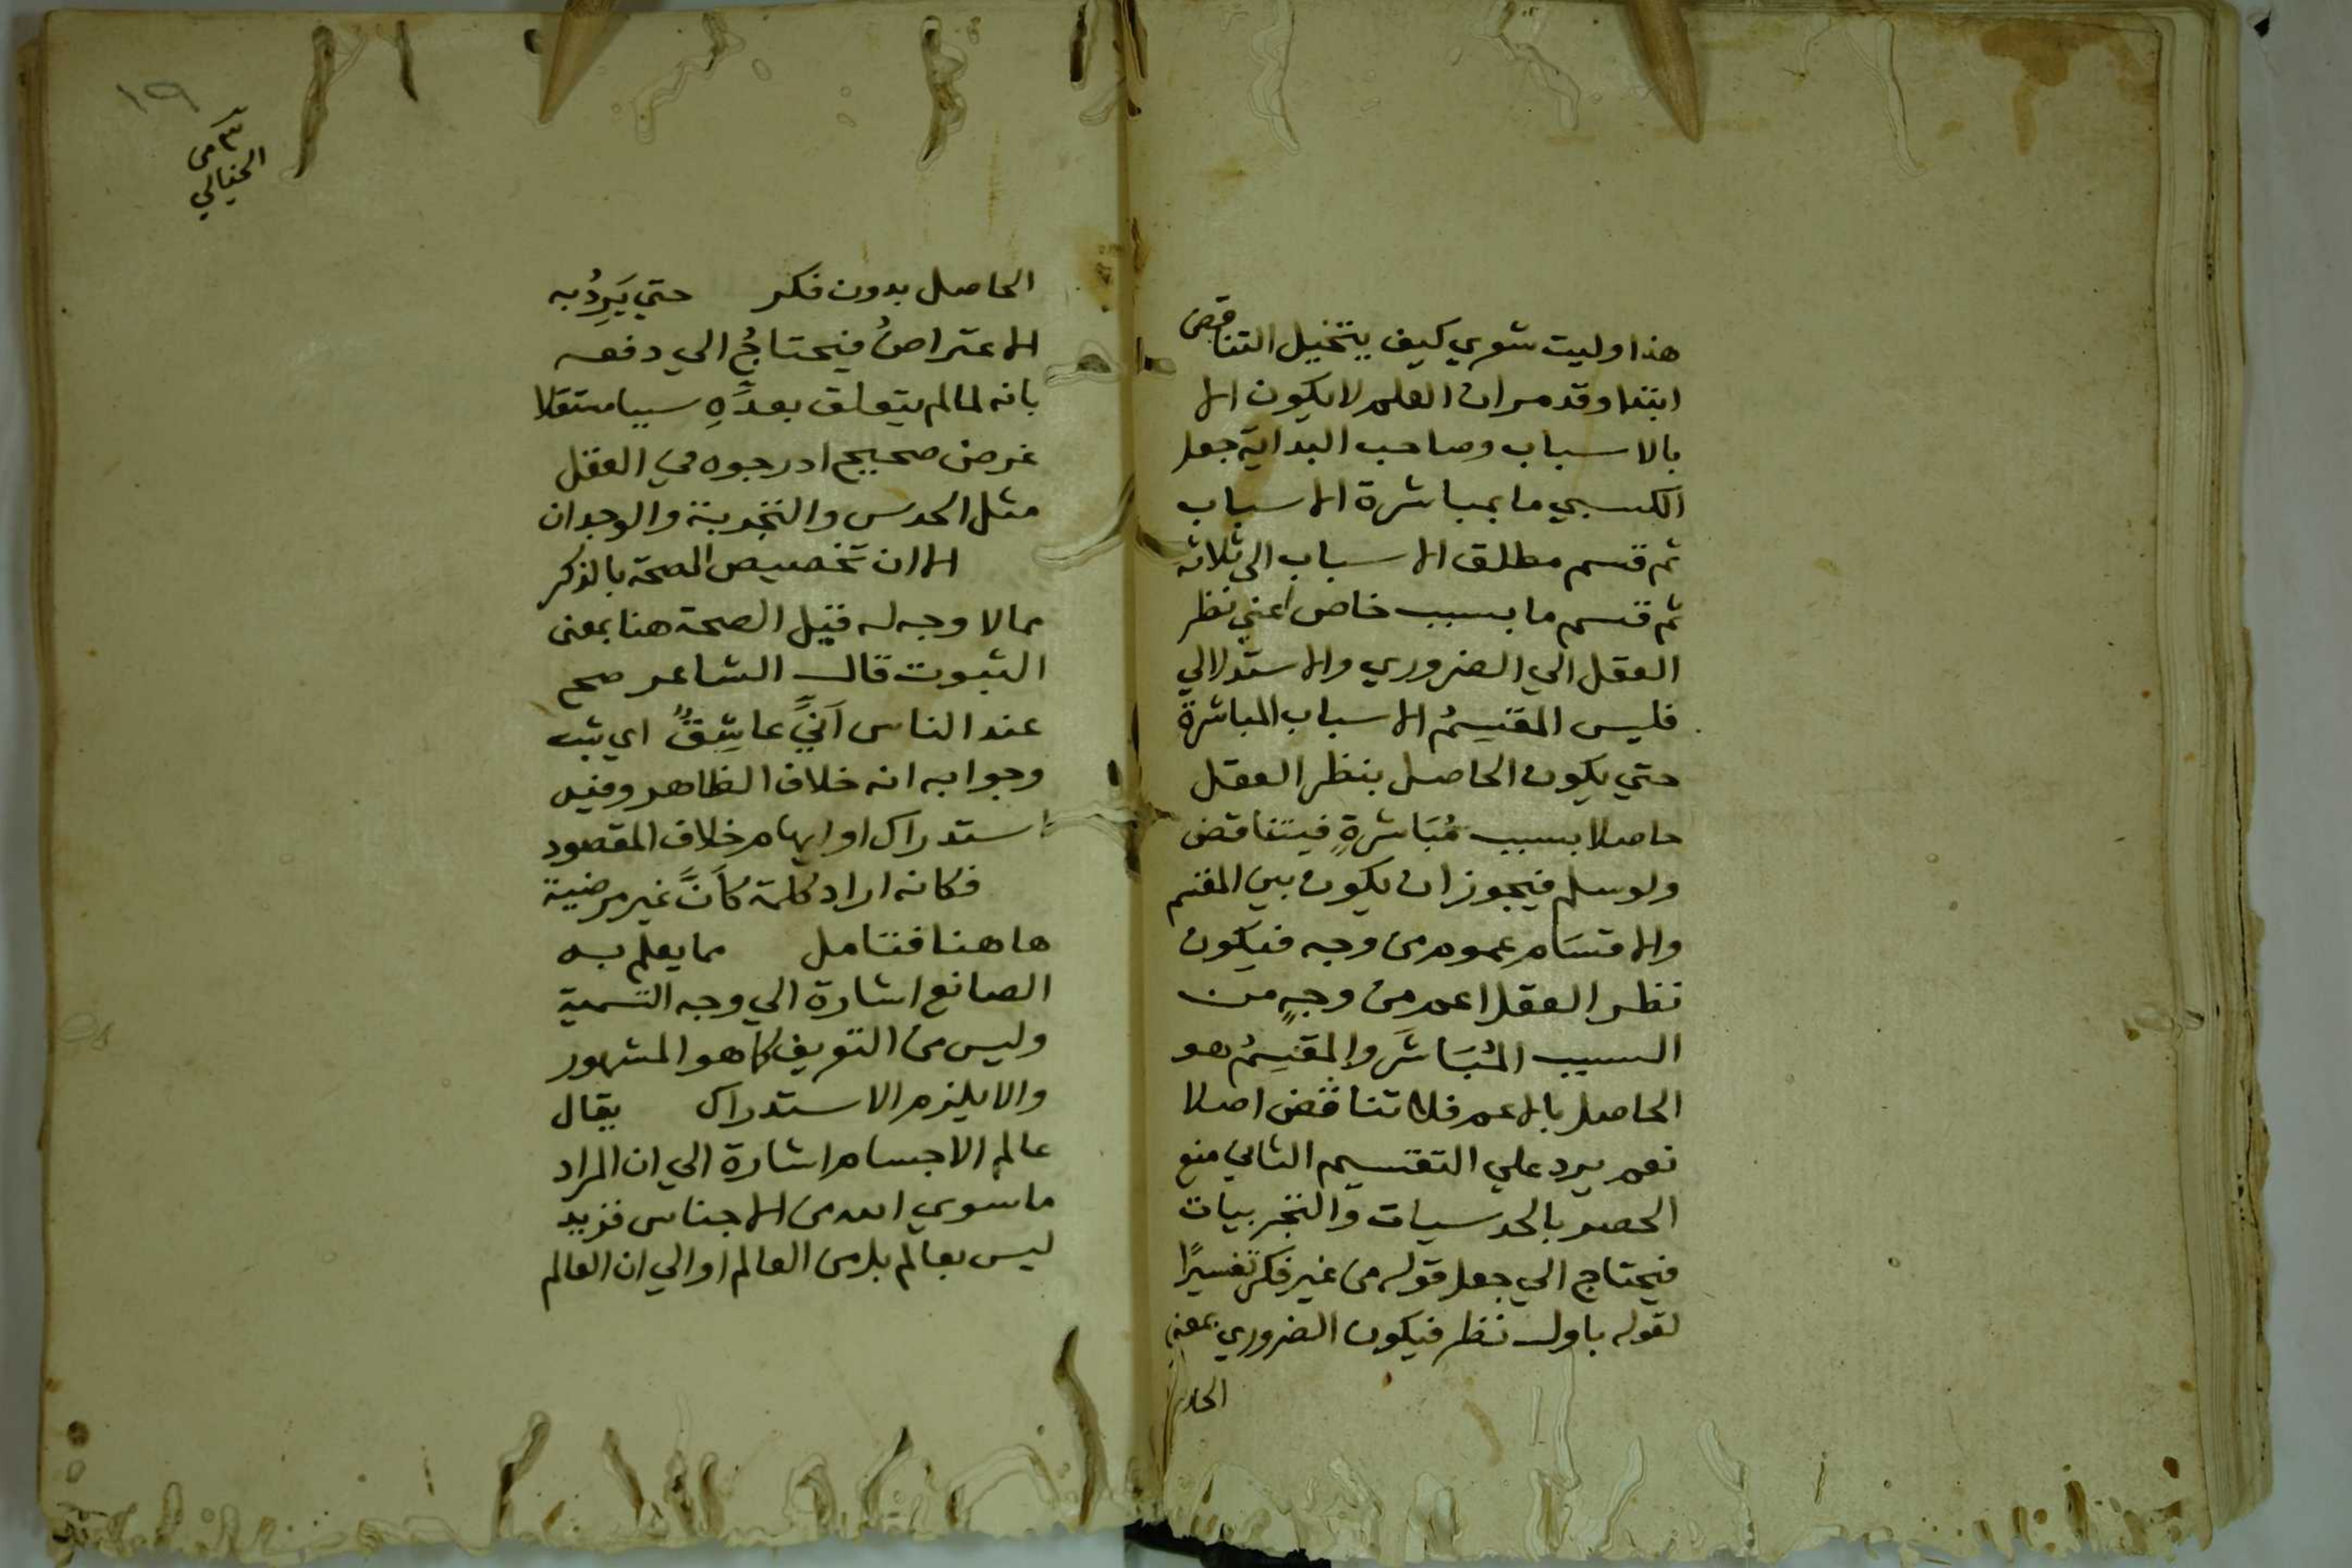 هذا وليت شعري كيف يتخيل التناقض
ابتدا وقد مر ان العلم لا يكون الا
بالاسباب وصاحب البداية جعل
الكسبي ما بمباشرة الاسباب
ثم قسم مطلق الاسباب الي ثلاثة
ثم قسم ما بسبب خاص اعني نظر
العقل الي الضروري والاستدلالي
فليس المقسِمُ الاسباب المباشرة
حتي يكون الحاصل بنظر العقل
حاصلا بسبب مُبَاشرةٍ فيتناقض
ولو سلم فيجوز ان يكون بين المقسم
والاقسَام عموم من وجه فيكون
نظر العقل اعم من وجهٍ من
السبب المُبَاشَر والمقسِمُ هو
الحاصل بالاعم فلا تناقض اصلا
نعم يرد علي التقسيم الثاني منع
الحصر بالحدسيات والتجربيات
فيحتاج الي جعل قوله من غير فكر تفسيرًا
لقوله باول نظر فيكون الضروري بمعني
الحاصل
١٩
٣ من
الخيالي
الحاصل بدون فكر حتي يَرِدُ به
الاعتراضُ فيحتاجُ الي دفعه
بانه لما لم يتعلق بعدِّهِ سببا مستقلا
غرض صحيح ادرجوه في العقل
مثل الحدس والتجربة والوجدان
الا ان تخصيص الصحة بالذكر
مما لا وجه له قيل الصحة هنا بمعنى
الثبوت قال الشاعر صح
عند الناس اَنِّي عاشِقٌ اي ثبت
وجوابه انه خلاف الظاهر وفيه
استدراك او ايهام خلاف المقصود
فكانه اراد كلمة كاَنَّ غير مرضية
هاهنا فتامل مما يعلم به
الصانع اشارة الي وجه التسمية
وليس من التعريف كما هو المشهور
والا يلزم الاستدراك يقال
عالم الاجسام اشارة الي ان المراد
ما سوي الله من الاجناس فزيد
ليس بعالم بل من العالم او الي ان العالم